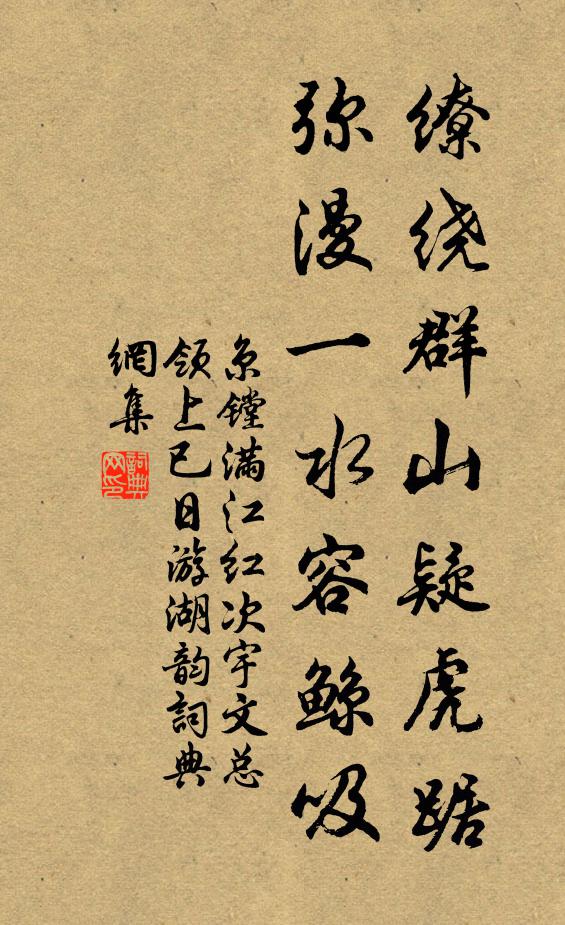 缭绕群山疑虎踞
弥漫一水容鲸吸
京镗满江红次宇文总
领上巳日游湖韵詞典
網集
詞典
网印